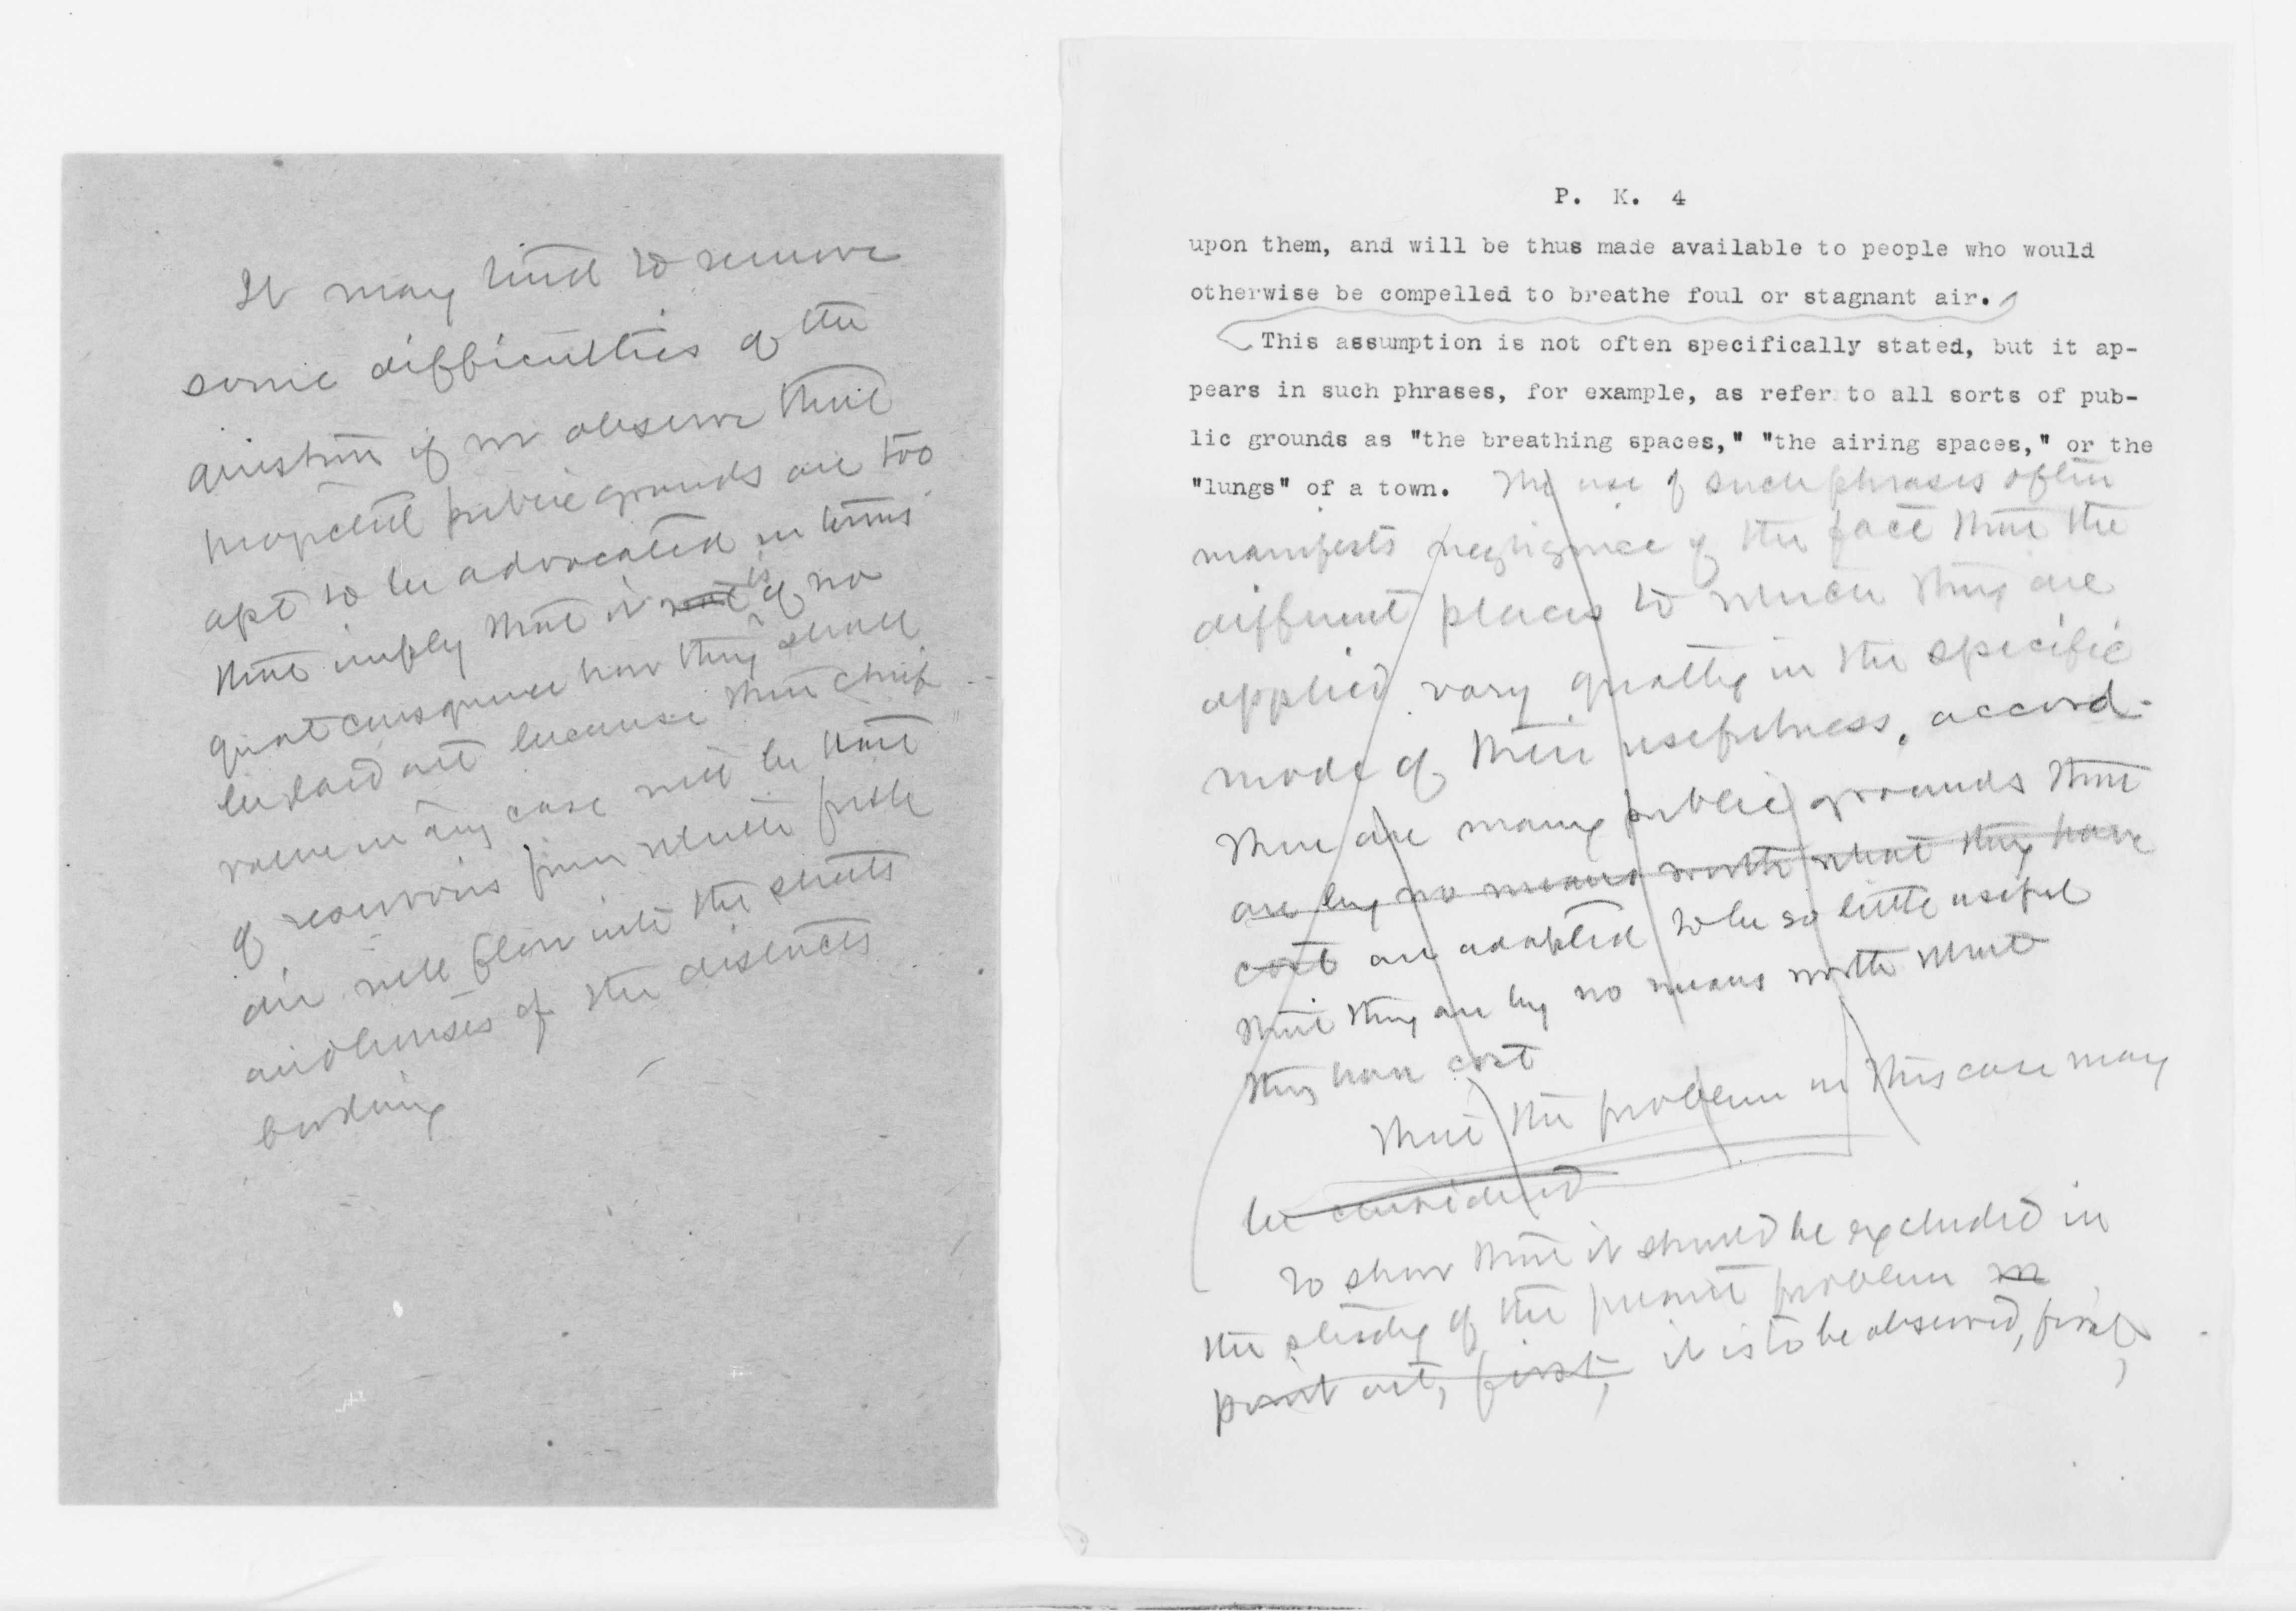 It may tend to remove
some difficulties of the
question if we observe that
projected public grounds are too
apt to be advocated in terms
that imply that it is of no
great consequence how they shall
be laid out because their chief
value in any case will be that
of reservoirs from which fresh
air will flow into the streets
and houses of the districts
bordering
P. K. 4
upon them, and will be thus made available to people who would
otherwise be compelled to breathe foul or stagnant air.
This assumption is not often specifically stated, but it ap-
pears in such phrases, for example, as refer to all sorts of pub-
lic grounds as "the breathing spaces," "the airing spaces," or the
"lungs" of a town. The use of such phrases often
manifests negligence of the fact that the
different places to which they are
applied vary greatly in the specific
mode of their usefulness, accord-
There are many public grounds that
are by no means worth what they have
cost are adapted to be so little useful
that they are by no means worth what
they have cost
That the problem in this case may
be considered
To show that it should be excluded in
the study of the present problem
point out, first, it is to be observed, first,